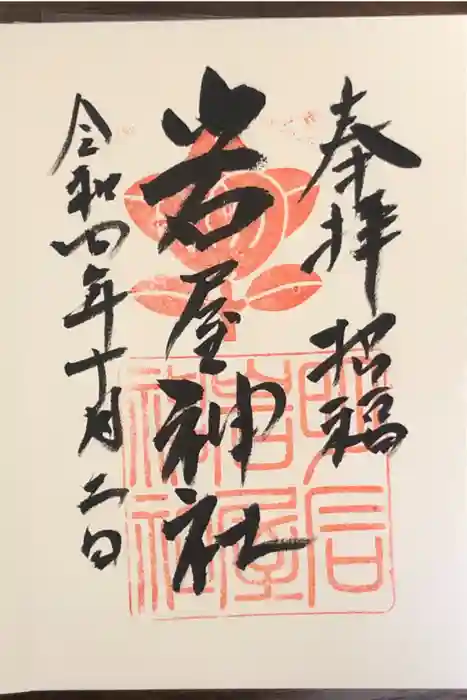 奉拝 招福
岩屋神社
令和四年十月二日
明石
岩屋
神社